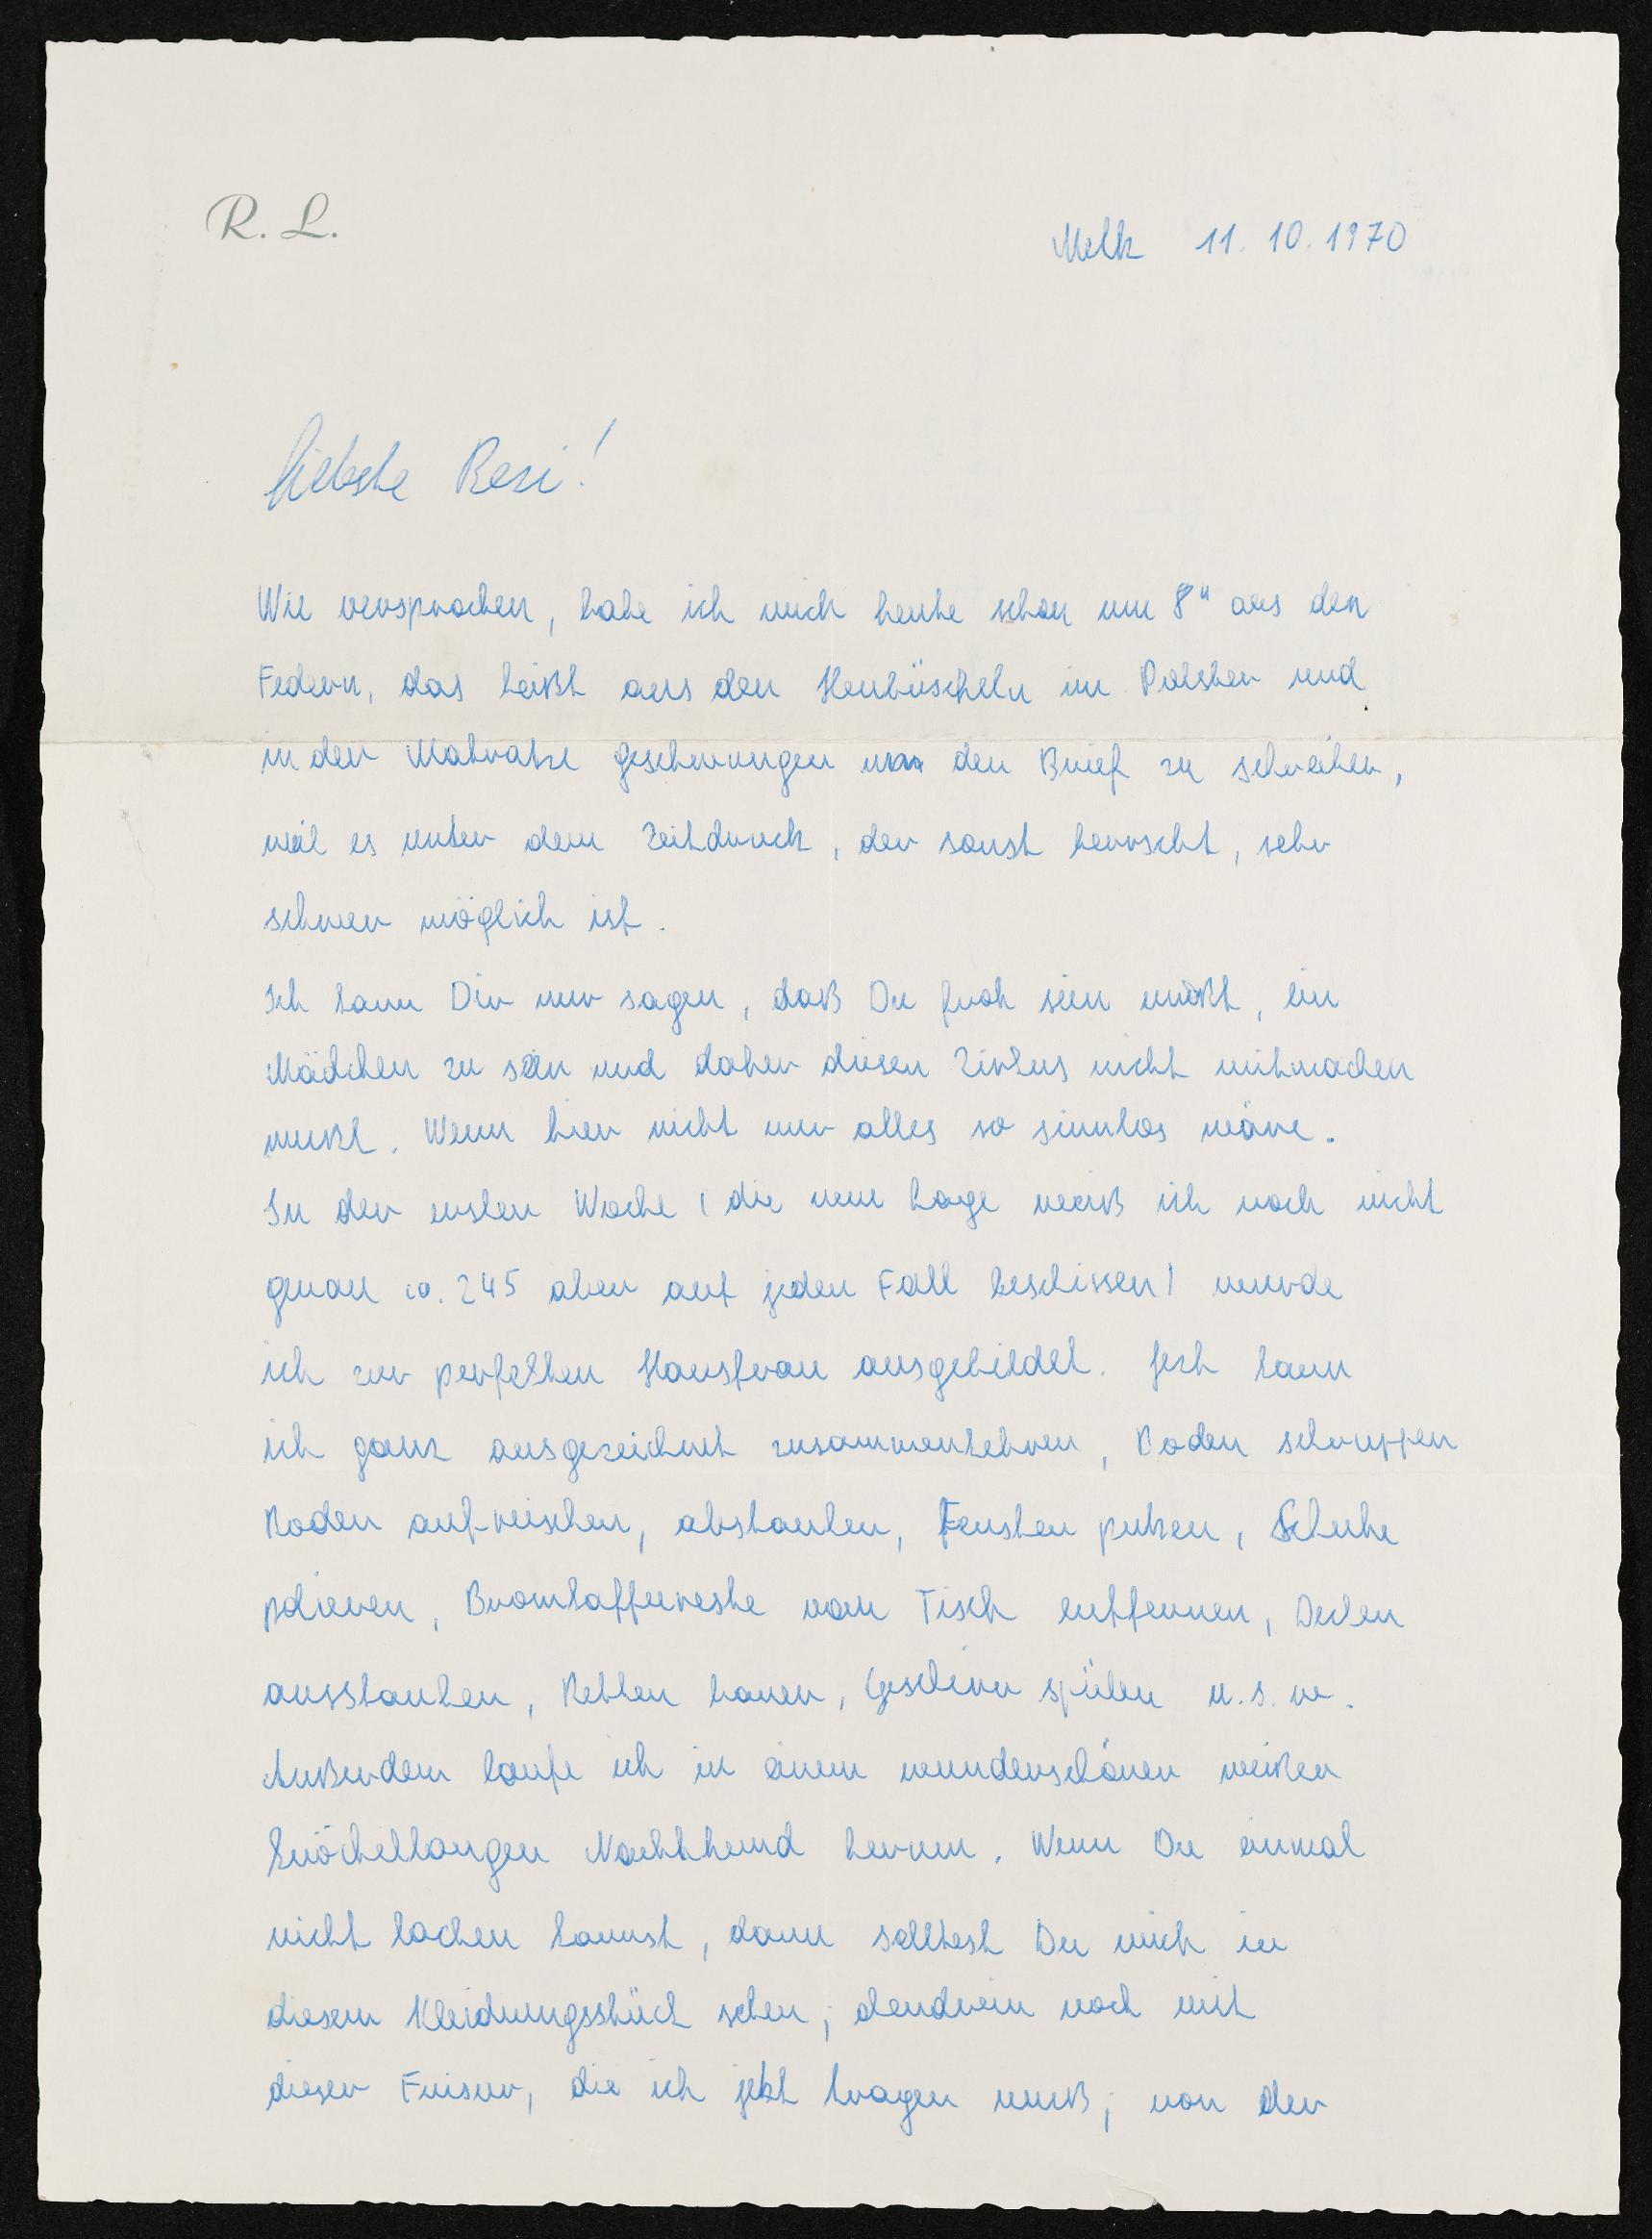 R. L.
Melk 11. 10. 1970
Liebste Resi!
Wie versprochen, habe ich mich heute schon um 8ʰ aus den
Federn, das heißt aus den Heubüscheln im Polster und
in der Matratze geschwungen um den Brief zu schreiben,
weil es unter dem Zeitdruck, der sonst herrscht, sehr
schwer möglich ist.
Ich kann Dir nur sagen, daß Du froh sein mußt, ein
Mädchen zu sein und daher diesen Zirkus nicht mitmachen
mußt. Wenn hier nicht nur alles so sinnlos wäre.
In der ersten Woche (die neue Lage weiß ich noch nicht
genau ca. 245 aber auf jeden Fall beschissen) wurde
ich zur perfekten Hausfrau ausgebildet. Jetzt kann
ich ganz ausgezeichnet zusammenkehren, Boden schruppen
Boden aufwischen, abstauben, Fenster putzen, Schuhe
polieren, Bromkaffeereste vom Tisch entfernen, Decken
ausstauben, Betten bauen, Geschirr spülen u. s. w.
Außerdem laufe ich in einem wunderschönen weißen
knöchellangen Nachthemd herum. Wenn Du einmal
nicht lachen kannst, dann solltest Du mich in
diesem Kleidungsstück sehen; obendrein noch mit
dieser Frisur, die ich jetzt tragen muß; von der